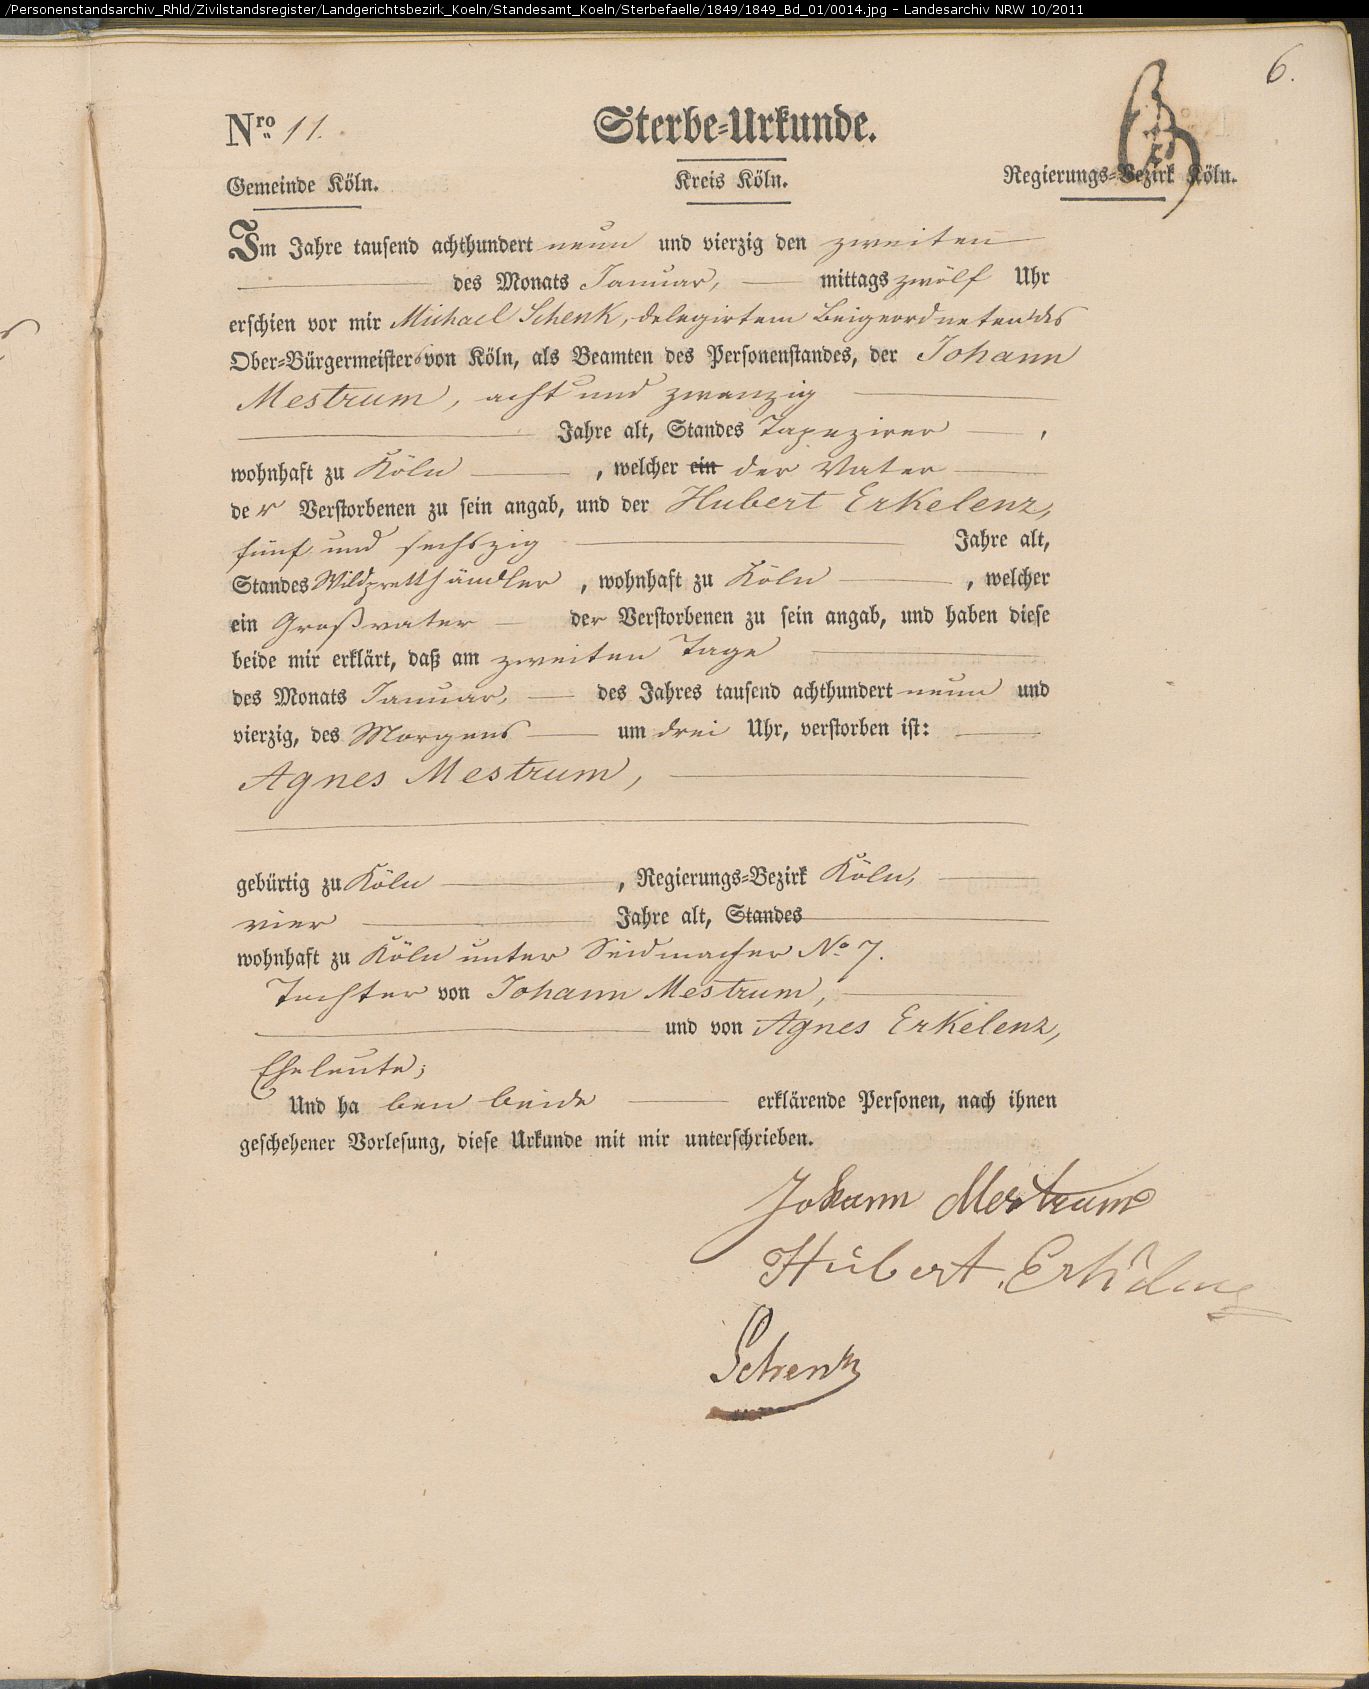 /Personenstandsarchiv_Rhld/Zivilstandsregister/Landgerichtsbezirk_Koeln/Standesamt_Koeln/Sterbefaelle/1849/1849_Bd_01/0014.jpg - Landesarchiv NRW 10/2011
6.
Nro 11. Sterbe-Urkunde.
Gemeinde Köln. Kreis Köln. Regierungs-Bezirk Köln.
Im Jahre tausend achthundert neun und vierzig den zweiten
des Monats Januar, mittags zwölf Uhr
erschien vor mir Michael Schenk, delegirtem Beigeordneten des
Ober-Bürgermeisters von Köln, als Beamten des Personenstandes, der Johann
Mestrum, acht und zwanzig
Jahre alt, Standes Tapezirer,
wohnhaft zu Köln, welcher ein der Vater
der Verstorbenen zu sein angab, und der Hubert Erkelenz,
fünf und sechszig Jahre alt,
Standes Wildpretthändler, wohnhaft zu Köln, welcher
ein Großvater der Verstorbenen zu sein angab, und haben diese
beide mir erklärt, daß am zweiten Tage
des Monats Januar, des Jahres tausend achthundert neun und
vierzig, des Morgens um drei Uhr, verstorben ist:
Agnes Mestrum,
gebürtig zu Köln, Regierungs-Bezirk Köln,
vier Jahre alt, Standes
wohnhaft zu Köln unter Seidmacher No 7.
Tochter von Johann Mestrum,
und von Agnes Erkelenz,
Eheleute;
Und haben beide erklärende Personen, nach ihnen
geschehener Vorlesung, diese Urkunde mit mir unterschrieben.
Johann Mestrum
Hubert Erkelenz
Schenk